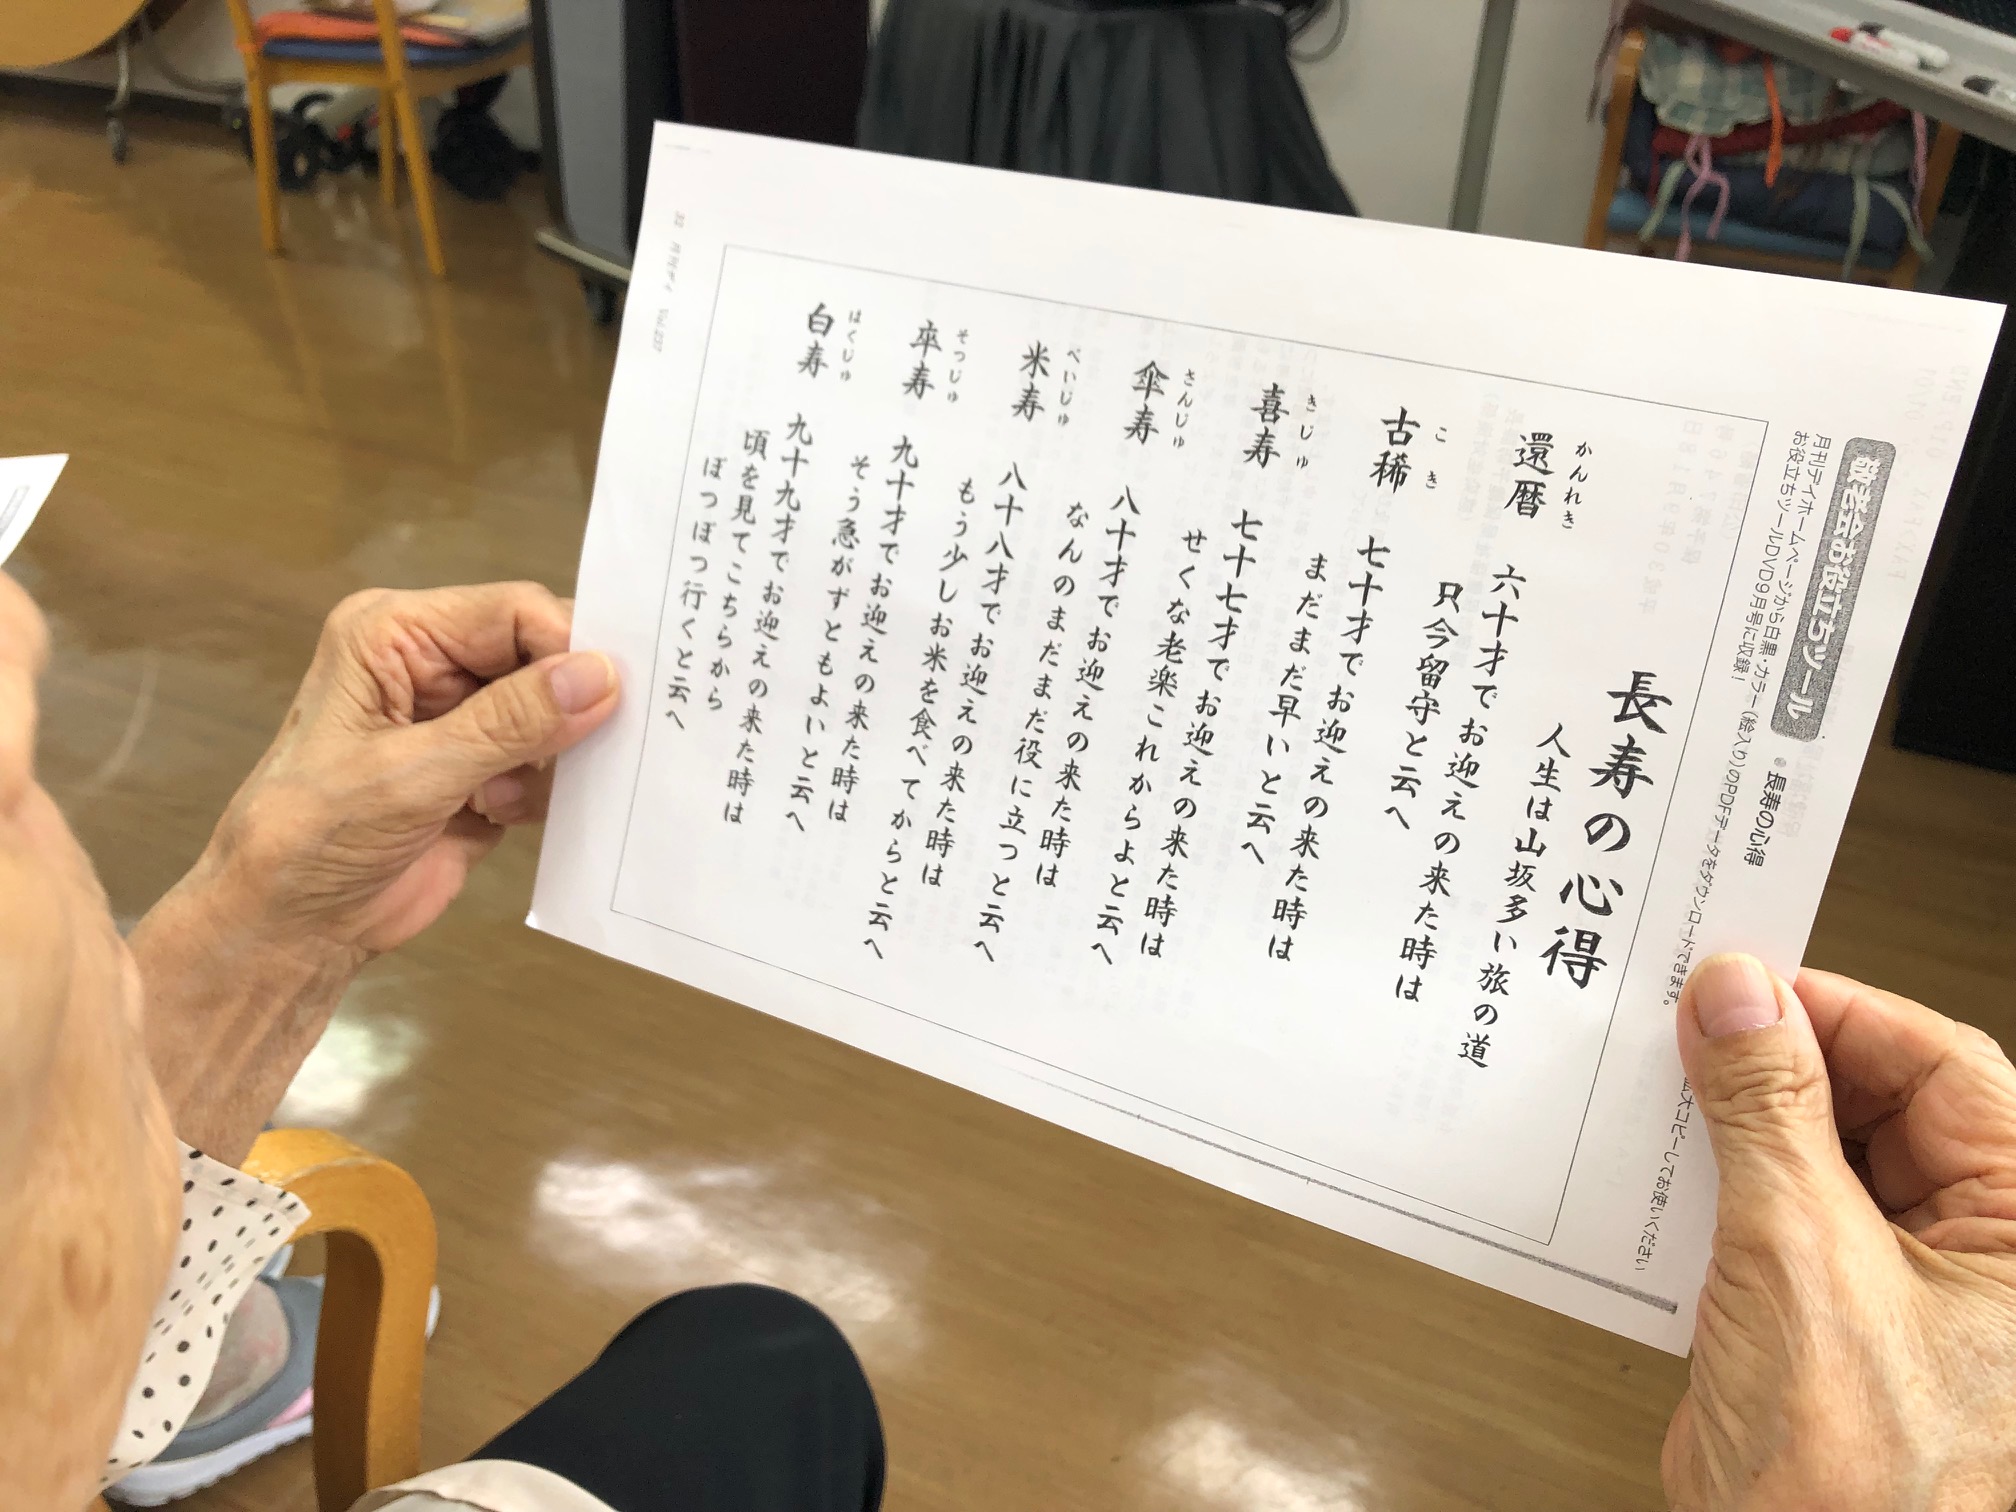 敬老会お役立ちツール
●長寿の心得
月刊デイホームページから白黒・カラー（絵入り）のPDFデータをダウンロードできます。
お役立ちツールDVD9月号に収録！
拡大コピーしてお使いください
長寿の心得
人生は山坂多い旅の道
かんれき
還暦 六十才でお迎えの来た時は
只今留守と云へ
こき
古稀 七十才でお迎えの来た時は
まだまだ早いと云へ
きじゅ
喜寿 七十七才でお迎えの来た時は
せくな老楽これからよと云へ
さんじゅ
傘寿 八十才でお迎えの来た時は
なんのまだまだ役に立つと云へ
べいじゅ
米寿 八十八才でお迎えの来た時は
もう少しお米を食べてからと云へ
そつじゅ
卒寿 九十才でお迎えの来た時は
そう急がずともよいと云へ
はくじゅ
白寿 九十九才でお迎えの来た時は
頃を見てこちらから
ぼつぼつ行くと云へ
月刊デイ Vol.237